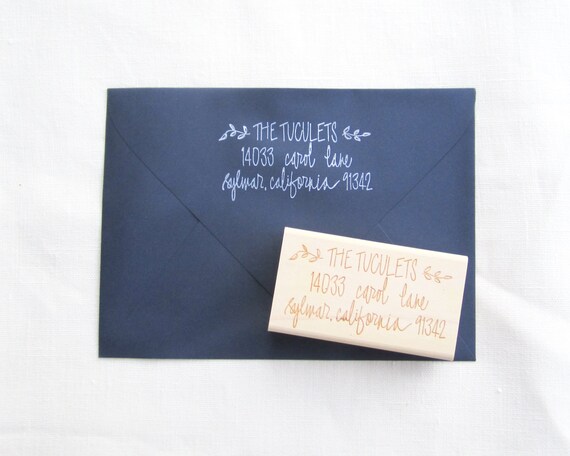 THE TUCULETS
14033 carol lane
sylmar, california 91342
THE TUCULETS
14033 carol lane
sylmar, california 91342